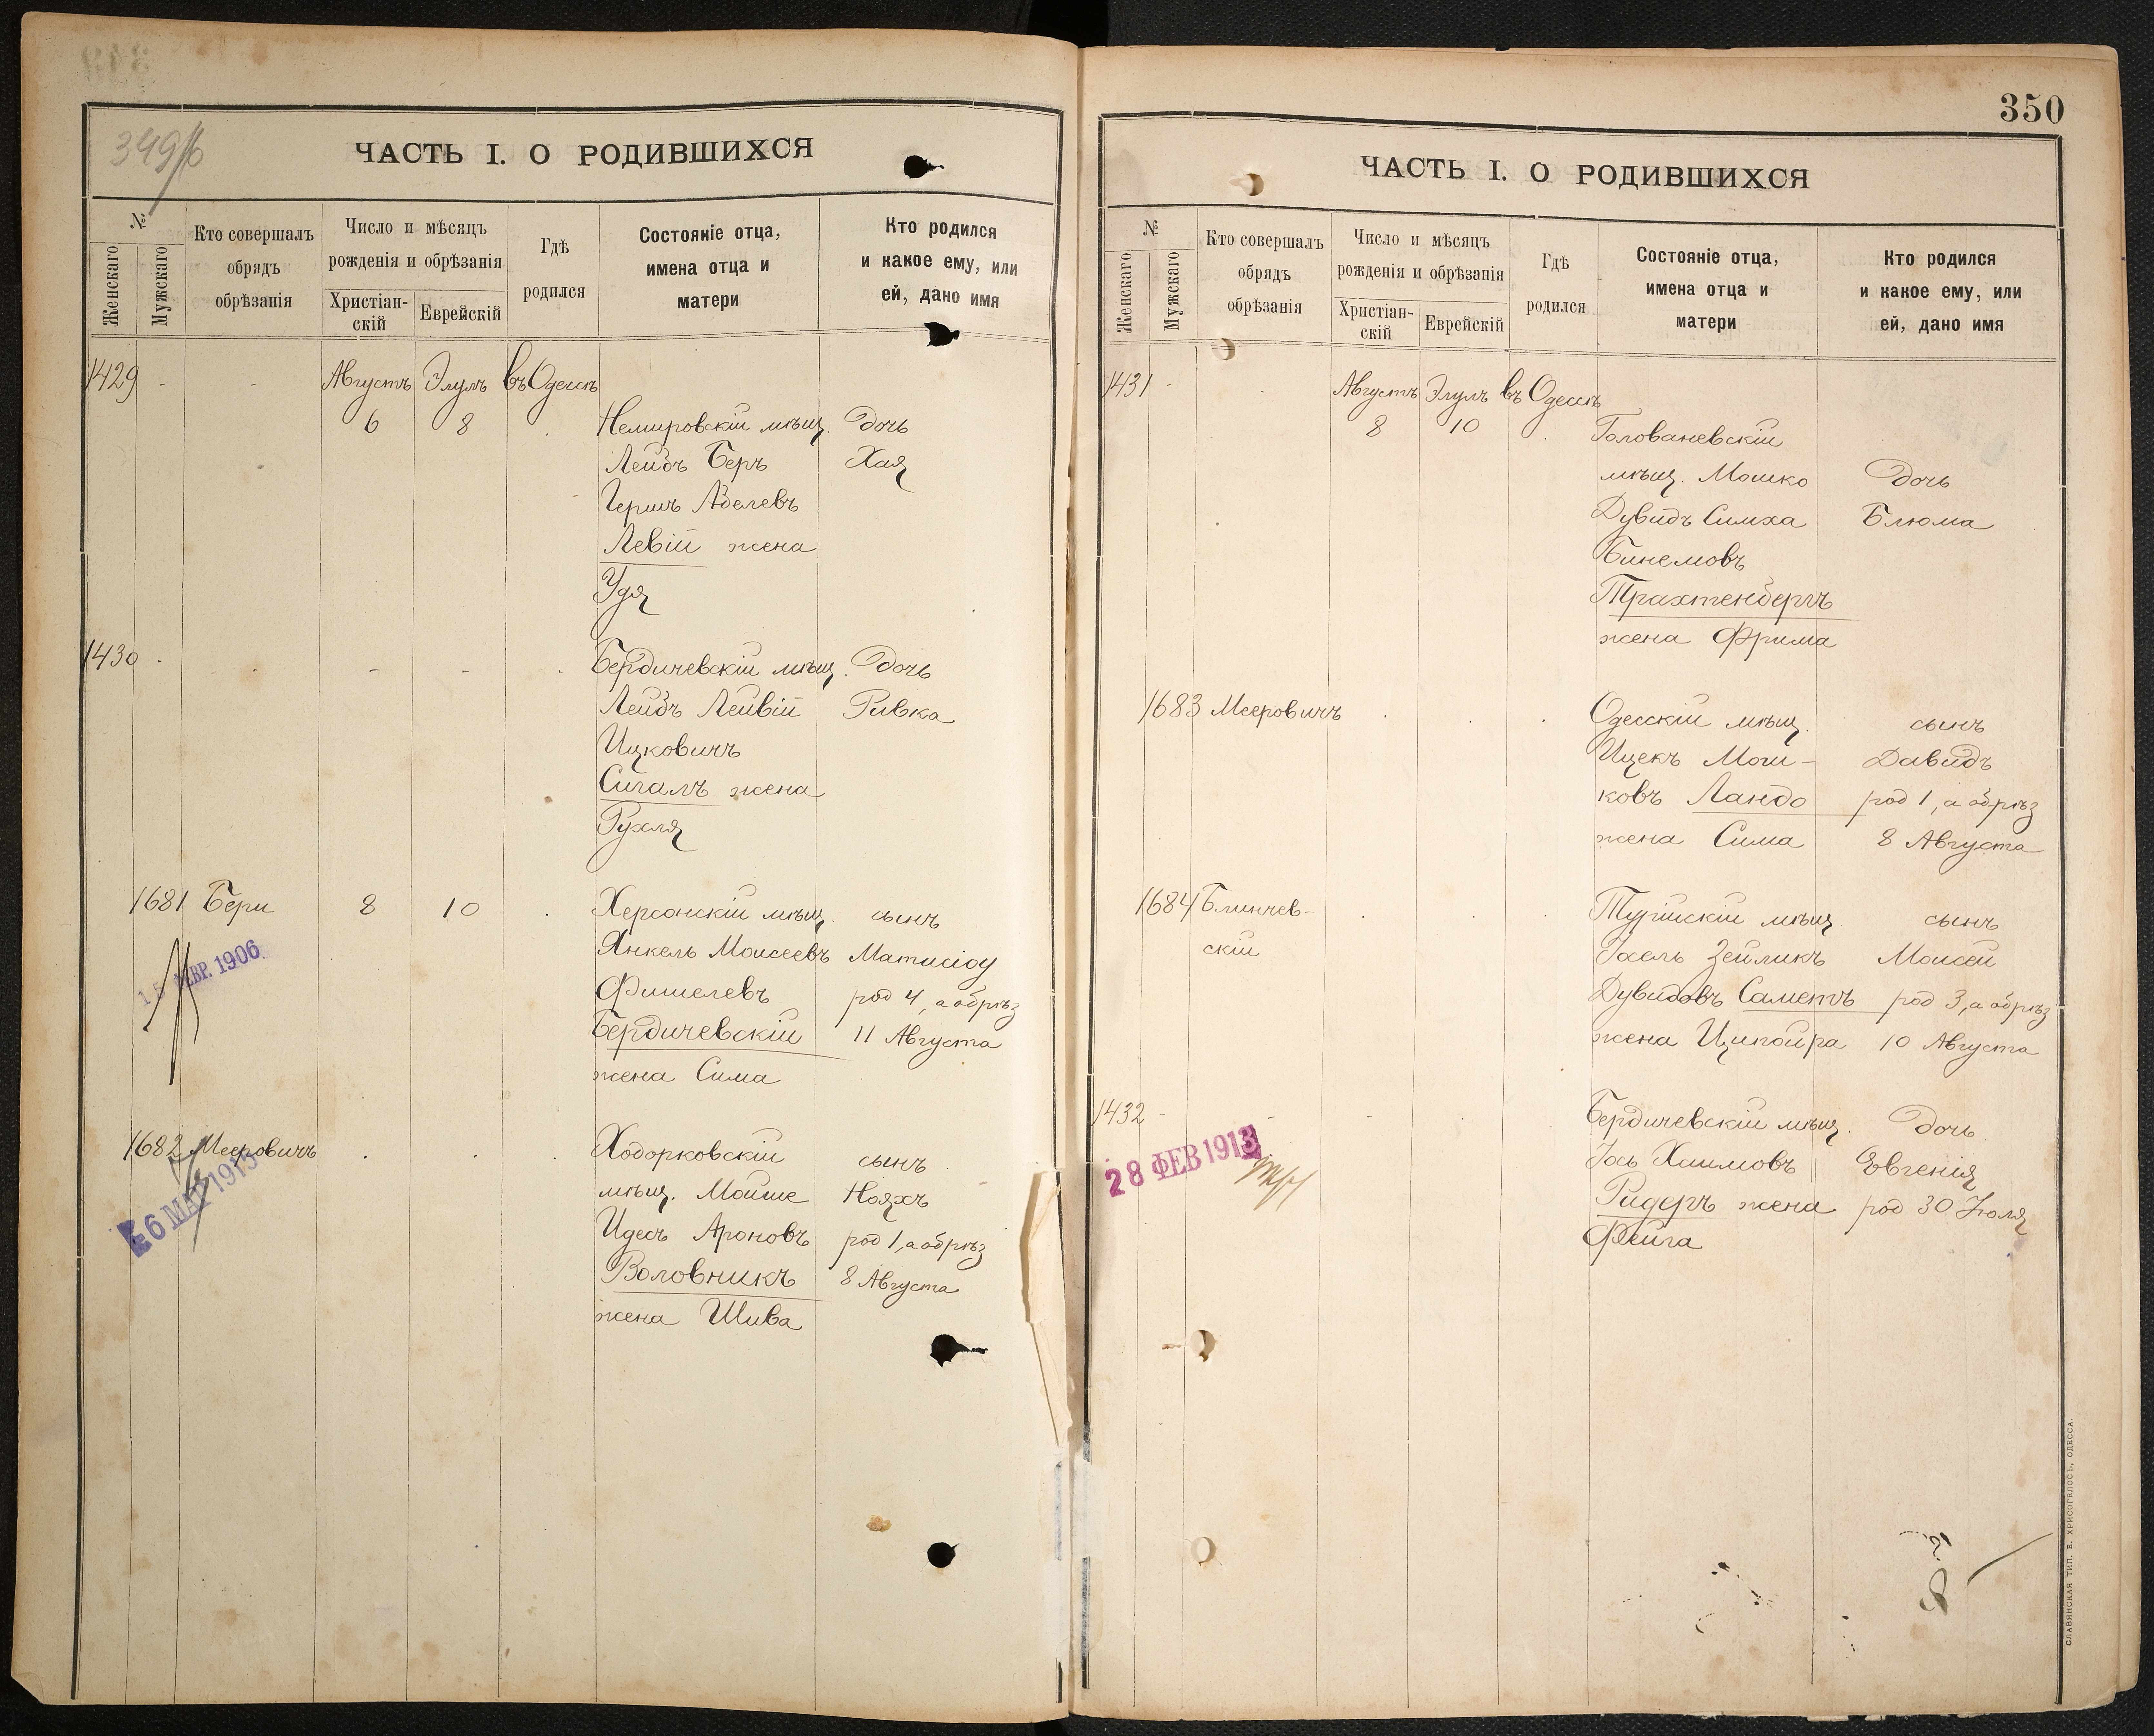 349/б
ЧАСТЬ I. О РОДИВШИХСЯ
№
Женскаго
Мужскаго
Кто совершалъ
обрядъ
обрѣзанія
Число и мѣсяцъ
рожденія и обрѣзанія
Христіан-
скій
Еврейскій
Гдѣ
родился
Состояніе отца,
имена отца и
матери
Кто родился
и какое ему, или
ей, дано имя
1429 - - Августъ Элулъ въ Одессѣ
6 8 Немировскій мѣщ. Дочь
Лейбъ Беръ Хая
Гершъ Абелевъ
Левій жена
Удя
1430 Бердичевскій мѣщ. Дочь
Лейбъ Лейвій Ривка
Ицковичъ
Сигалъ жена
Рухля
1681 Бери 8 10 Херсонскій мѣщ. сынъ
Янкель Моисеевъ Матисіоу
Фишелевъ род 4, а обрѣз
Бердичевскій 11 Августа
жена Сима
ФЕВР. 1906
1682 Мееровичъ Ходорковскій сынъ
мѣщ. Мойше Нояхъ
Идесъ Ароновъ род 1, а обрѣз
Воловникъ 8 Августа
жена Шива
6 МАР 1915
350
ЧАСТЬ I. О РОДИВШИХСЯ
№
Женскаго
Мужскаго
Кто совершалъ
обрядъ
обрѣзанія
Число и мѣсяцъ
рожденія и обрѣзанія
Христіан-
скій
Еврейскій
Гдѣ
родился
Состояніе отца,
имена отца и
матери
Кто родился
и какое ему, или
ей, дано имя
1431 - Августъ Элулъ въ Одессѣ
8 10 Голованевскій
мѣщ. Мошко Дочь
Дувидъ Симха Блюма
Бинемовъ
Трахтенбергъ
жена Фрима
1683 Мееровичъ Одесскій мѣщ. сынъ
Ицекъ Мош- Давидъ
ковъ Ландо род 1, а обрѣз
жена Сима 8 Августа
1684 Блинчев- Турійскій мѣщ сынъ
скій Іосель Зейликъ Моисей
Дувидовъ Саметъ род 3, а обрѣз
жена Ципойра 10 Августа
1432 - Бердичевскій мѣщ. Дочь
Іось Хаимовъ Евгенія
Ридеръ жена род 30 Іюля
Фейга
28 ФЕВ 1913
СЛАВЯНСКАЯ ТИП. Е. ХРИСОГЕЛОСЪ, ОДЕССА.